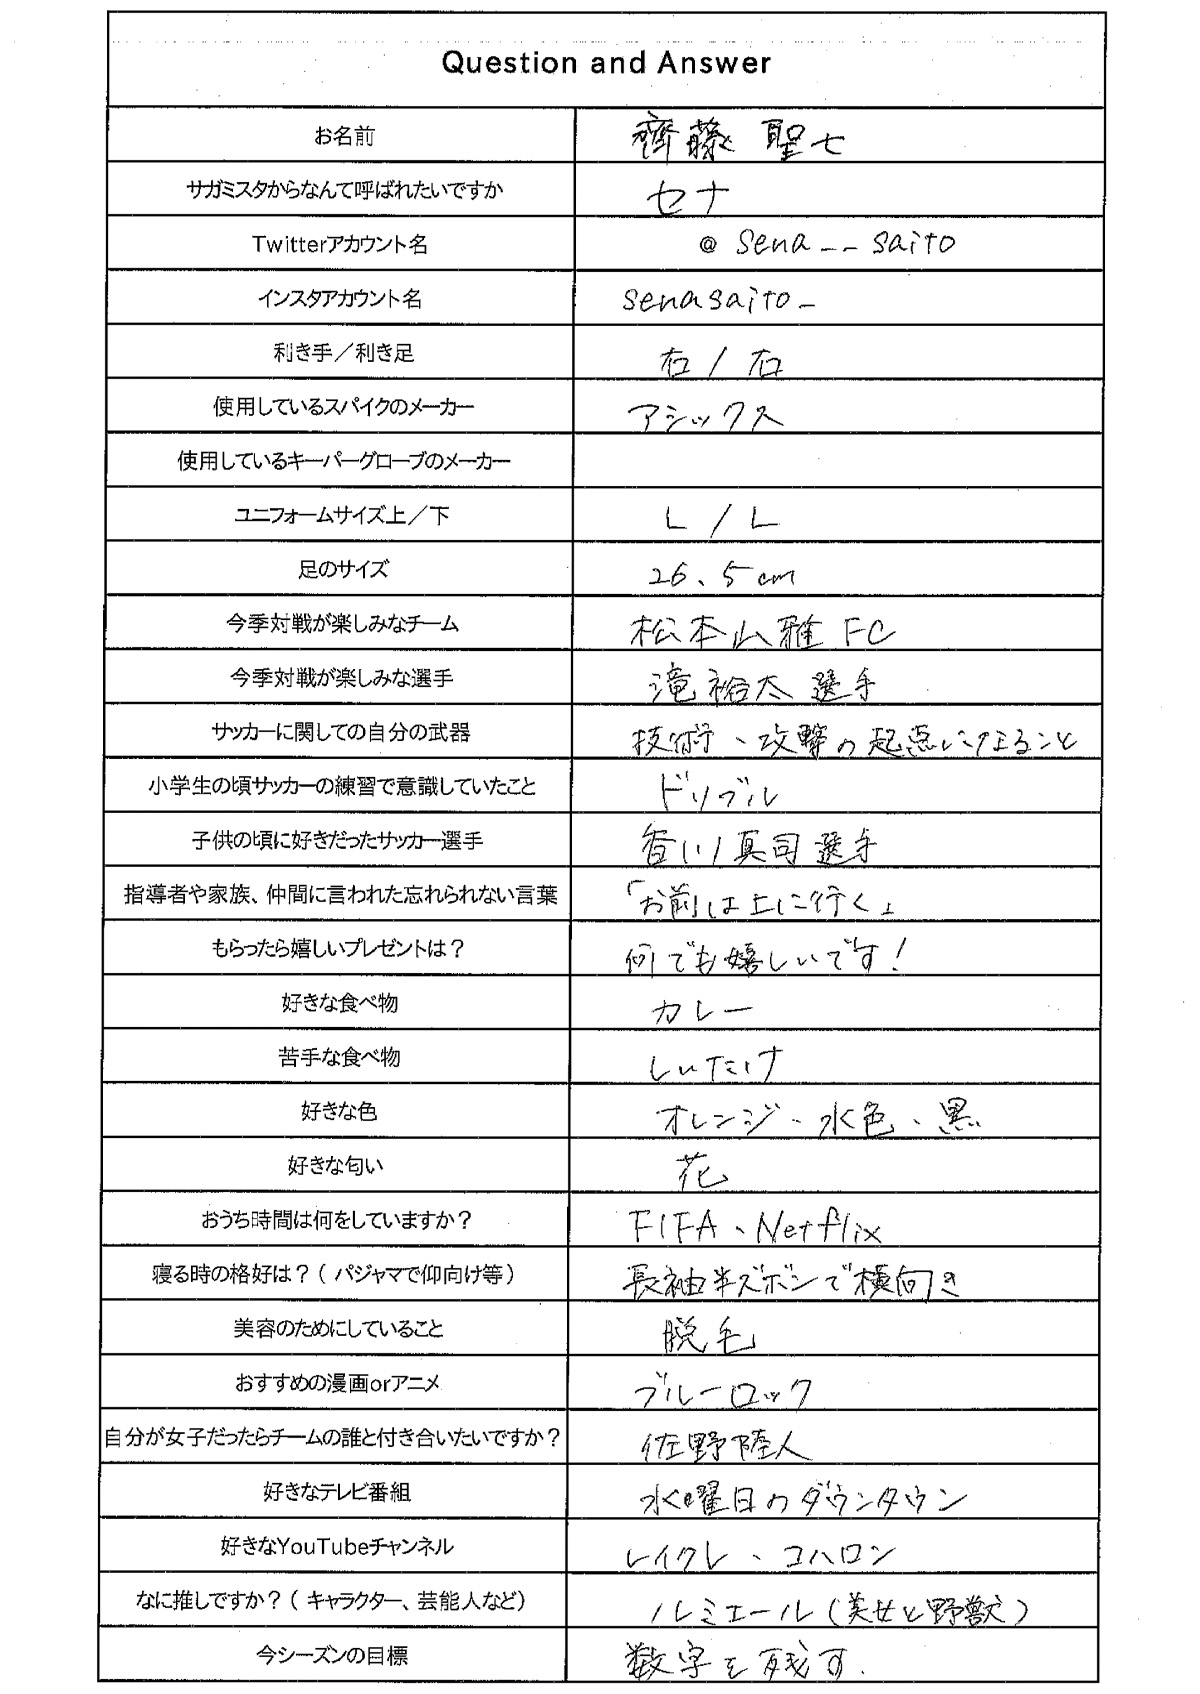 Question and Answer
お名前 齊藤 聖七
サガミスタからなんて呼ばれたいですか セナ
Twitterアカウント名 @ sena__saito
インスタアカウント名 senasaito_
利き手／利き足 右 / 右
使用しているスパイクのメーカー アシックス
使用しているキーパーグローブのメーカー
ユニフォームサイズ上／下 L / L
足のサイズ 26.5cm
今季対戦が楽しみなチーム 松本山雅FC
今季対戦が楽しみな選手 滝裕太選手
サッカーに関しての自分の武器 技術、攻撃の起点になること
小学生の頃サッカーの練習で意識していたこと ドリブル
子供の頃に好きだったサッカー選手 香川真司選手
指導者や家族、仲間に言われた忘れられない言葉 「お前は上に行く」
もらったら嬉しいプレゼントは？ 何でも嬉しいです！
好きな食べ物 カレー
苦手な食べ物 しいたけ
好きな色 オレンジ、水色、黒
好きな匂い 花
おうち時間は何をしていますか？ FIFA、Netflix
寝る時の格好は？（パジャマで仰向け等） 長袖半ズボンで横向き
美容のためにしていること 脱毛
おすすめの漫画orアニメ ブルーロック
自分が女子だったらチームの誰と付き合いたいですか？ 佐野陸人
好きなテレビ番組 水曜日のダウンタウン
好きなYouTubeチャンネル レイクレ、コハロン
なに推しですか？（キャラクター、芸能人など） ルミエール（美女と野獣）
今シーズンの目標 数字を残す.